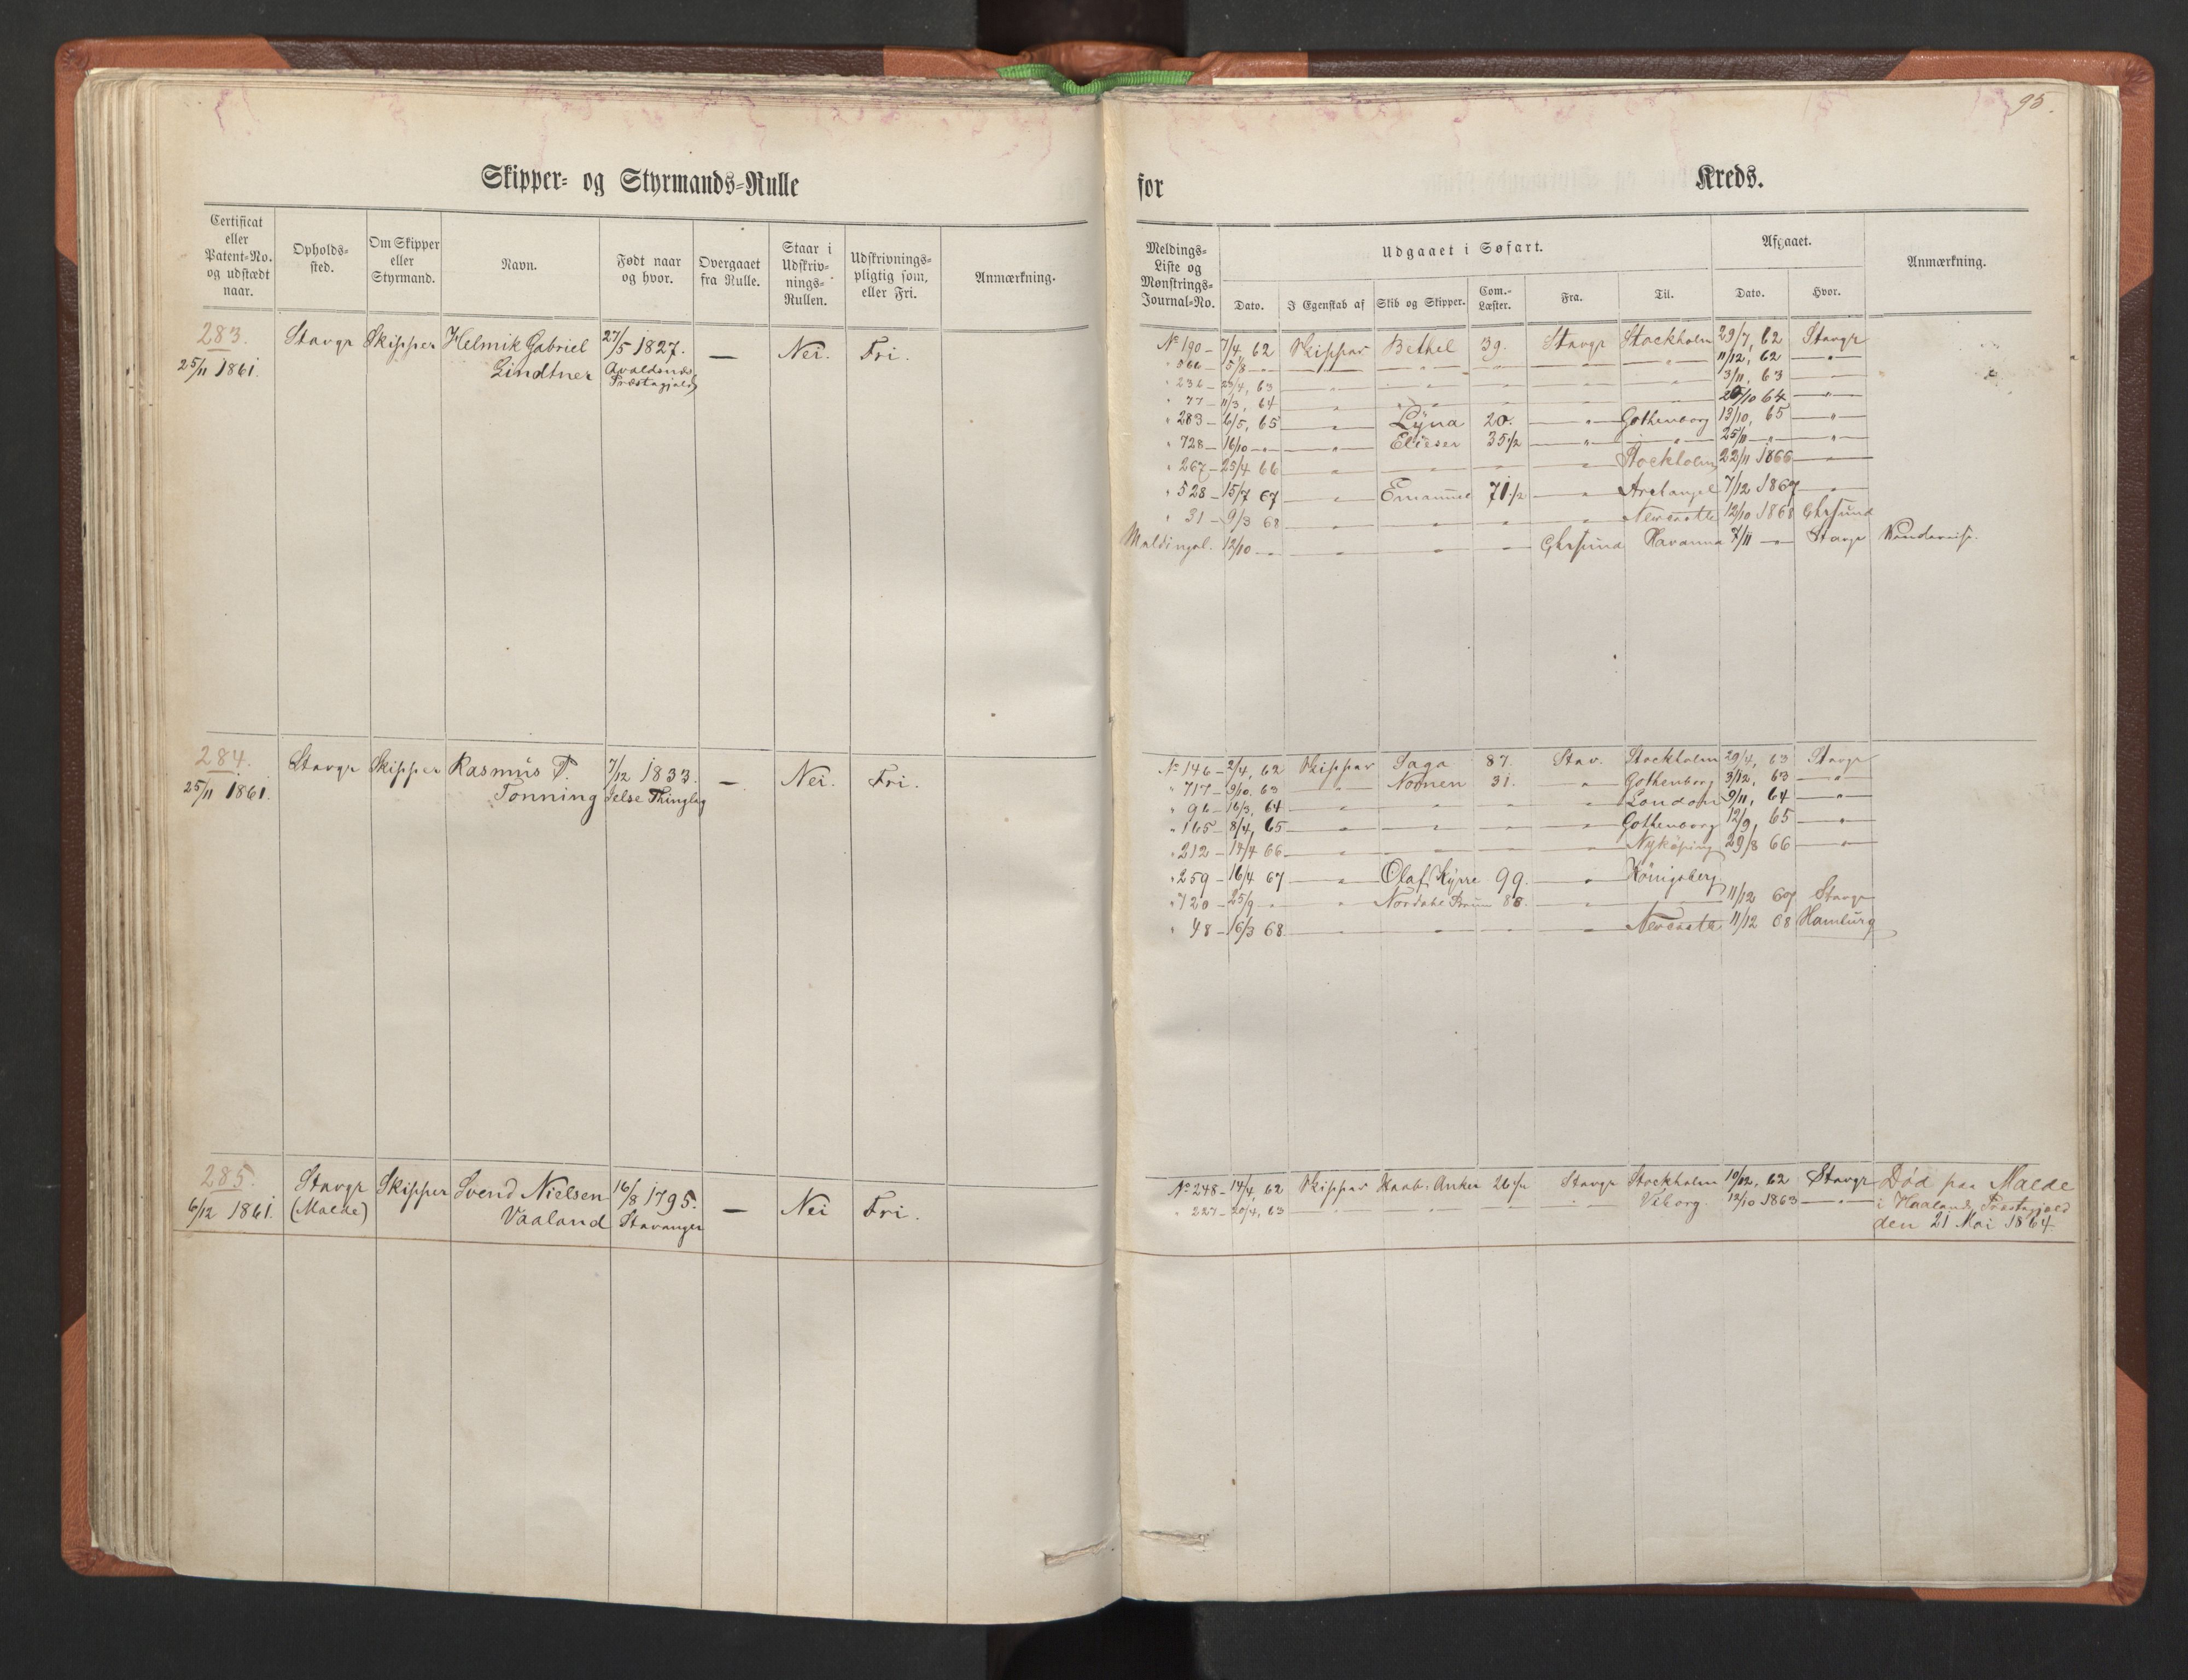 95.
Skipper- og Styrmands-Rulle
for Kreds.
Certificat eller Patent-No. og udstædt naar.
Opholds-sted.
Om Skipper eller Styrmand.
Navn.
Født naar og hvor.
Overgaaet fra Rulle.
Staar i Udskriv-nings-Rullen.
Udskrivnings-pligtig som, eller Fri.
Anmærkning.
Meldings-Liste og Mønstrings-Journal-No.
Udgaaet i Søfart.
Dato.
I Egenskab af
Skib og Skipper.
Com.-Læster.
Fra.
Til.
Afgaaet.
Dato.
Hvor.
Anmærkning.
283. Stavgr Skipper Helmik Gabriel 27/5 1827. — Nei. Fri.
25/11 1861. Lindtner Avaldsnæs Præstegjæld
No 190 - 7/4, 62 Skipper Bethel 39. Stavgr Stockholm 29/7, 62 Stavgr
" 566 - 15/8 - " - " - " - " - " 11/12, 62 - " -
" 236 - 29/4, 63 - " - " - " - " - " 3/11, 63 -
" 77 - 11/3, 64 - " - " - " - " 20/10 64 - " -
" 283 - 6/5, 65 - " - Lÿna 20. - " - Gothenborg 13/10, 65 - " -
" 728 - 16/10 - " - " - Elieser 35 1/2 - " - " - 25/11 - " - " -
" 267 - 25/4 66 - " - " - " - " - Stockholm 22/11 1866 - " -
" 528 - 15/7 67 - " - Emanuel 71 1/2 - " - Archangel 7/12 1867 - " -
" 31 - 9/3 68 - " - " - " - " - Newcastle 12/10 1868 Chrsund
Meldingsl. 12/10 - " - " - " - " - Chrsund Havanna 7/11 - " - Stavgr
284. Stavgr Skipper Rasmus T. 7/12 1833. — Nei. Fri.
25/11 1861. Tonning Jelse Thinglag
No 146 - 2/4, 62 Skipper Saga 87. Stav. Stockholm 29/4, 63 Stavgr
" 717 - 9/10, 63 - " - Nornen 31. - " - Gothenborg 3/12, 63 - " -
" 96 - 16/3, 64 - " - " - " - " - London 9/11, 64 - " -
" 165 - 8/4, 65 - " - " - " - " - Gothenborg 12/9, 65 - " -
" 212 - 14/4 66 - " - " - " - " - Nyköping 29/8 66 - " -
" 259 - 16/4 67 - " - Olaf Kyrre 99. - " - Königsberg
" 720 - 25/9 - " - " - Nordahl Brun 88. - " - " - 11/12 67 Stavgr
" 48 - 16/3 68 - " - " - " - " - Newcastle 11/12 68 Hamburg
285. Stavgr Skipper Svend Nielsen 16/8 1795. — Nei Fri.
6/12 1861. (Malde) Vaaland Stavanger
No 248 - 14/4, 62 Skipper Haab: Anker 26 Stavgr Stockholm 10/12, 62 Stavgr Død paa Malde
" 227 - 20/4, 63 - " - " - " - " - Viborg. 12/10 1863 - " - i Haalands Præstegjæld
den 21 Mai 1864.